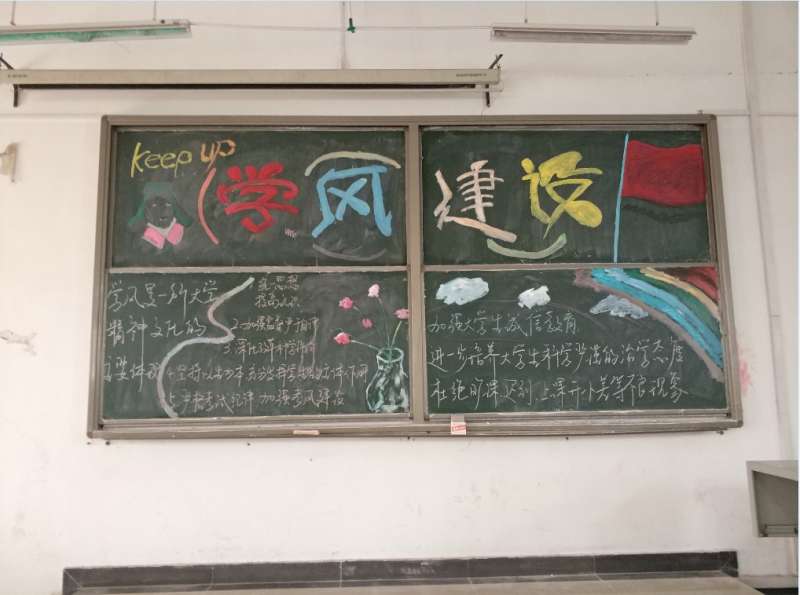 Keep up
学风建设
学风是一种大学
精神文化的
重要体现
提高认识
2.加强
3.深化
4.坚持以
5.严肃考试纪律 加强学风建设
加强大学生诚信教育
进步培养大学生科学严谨的治学态度
杜绝旷课迟到.上课开小差等不良现象